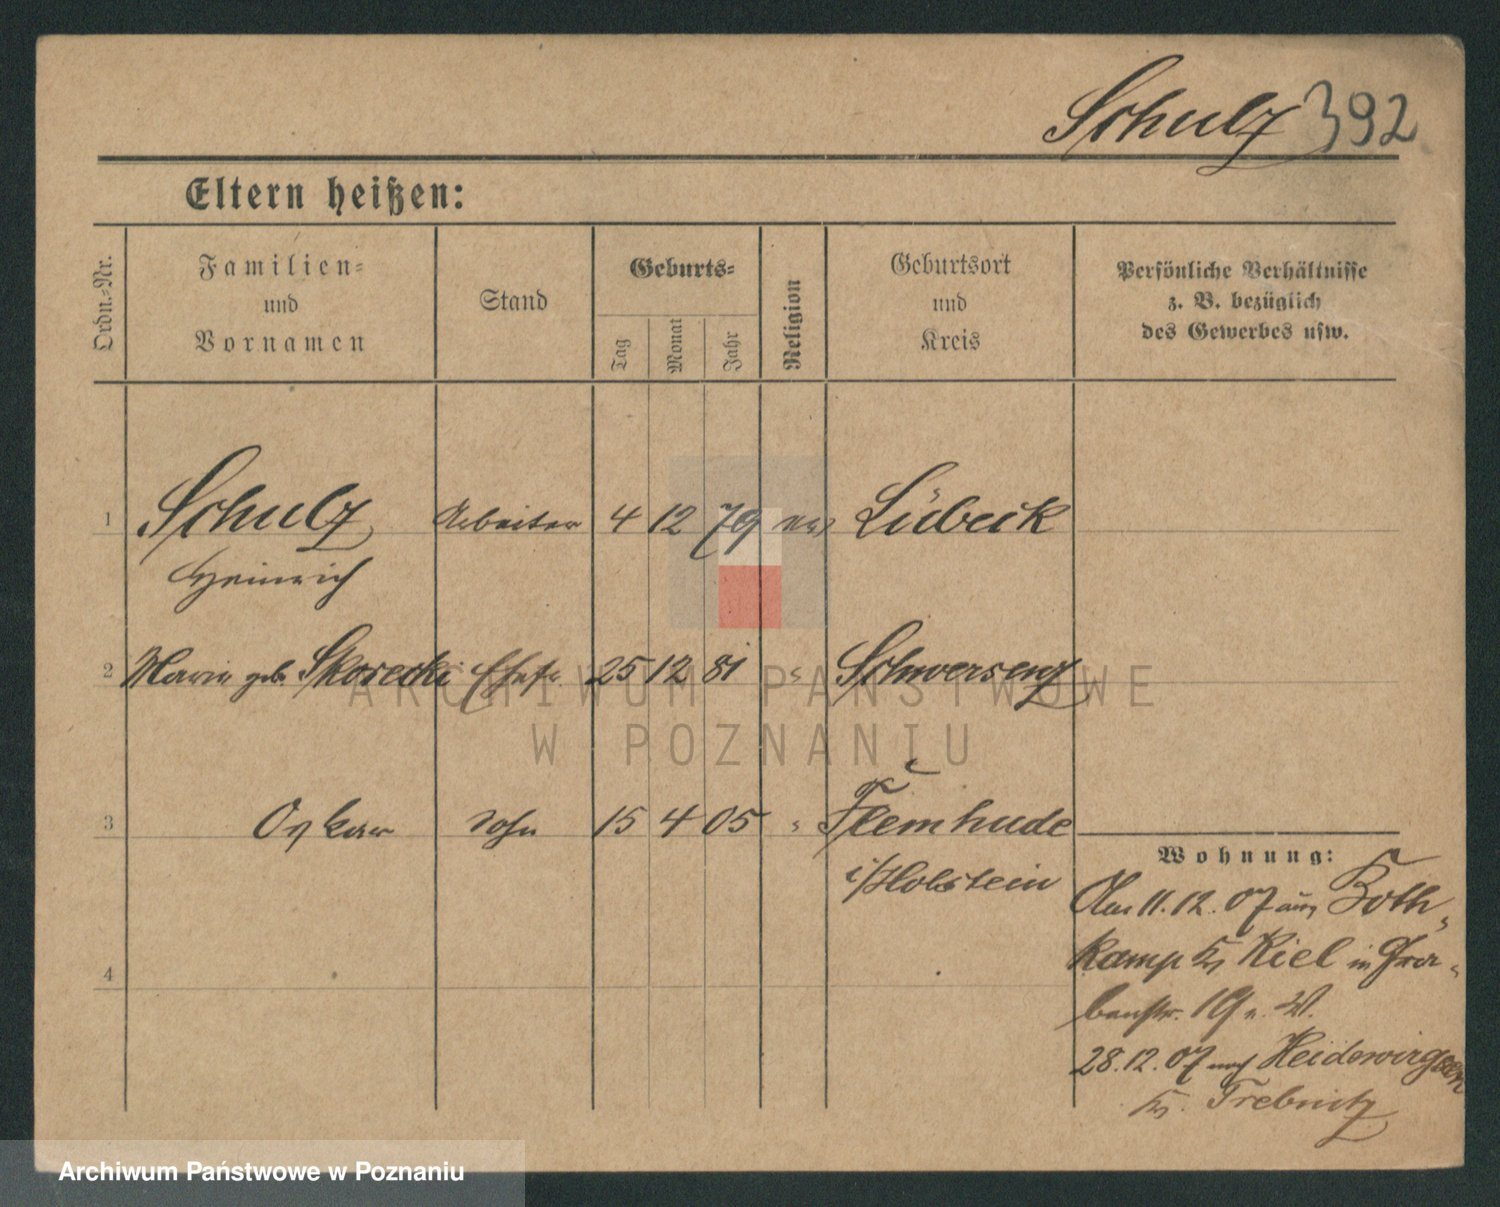 Schulz 392
Eltern heißen:
Ordn.-Nr.
Familien-
und
Vornamen
Stand
Geburts-
Tag
Monat
Jahr
Religion
Geburtsort
und
Kreis
Persönliche Verhältnisse
z. B. bezüglich
des Gewerbes usw.
1 Schulz Arbeiter 4 12 79 ev Lübeck
Heinrich
2 Maria geb. Skorecki Ehefr. 25 12 81 " Schwersenz
3 Oskar Sohn 15 4 05 " Flemhude
i/Holstein
4
Wohnung:
Am 11.12.07 aus Both-
kamp Kr Kiel in Gra-
benstr. 19 b. W.
28.12.07 nach Heidewirgsen
Kr. Trebnitz
ARCHIWUM PAŃSTWOWE
W POZNANIU
Archiwum Państwowe w Poznaniu